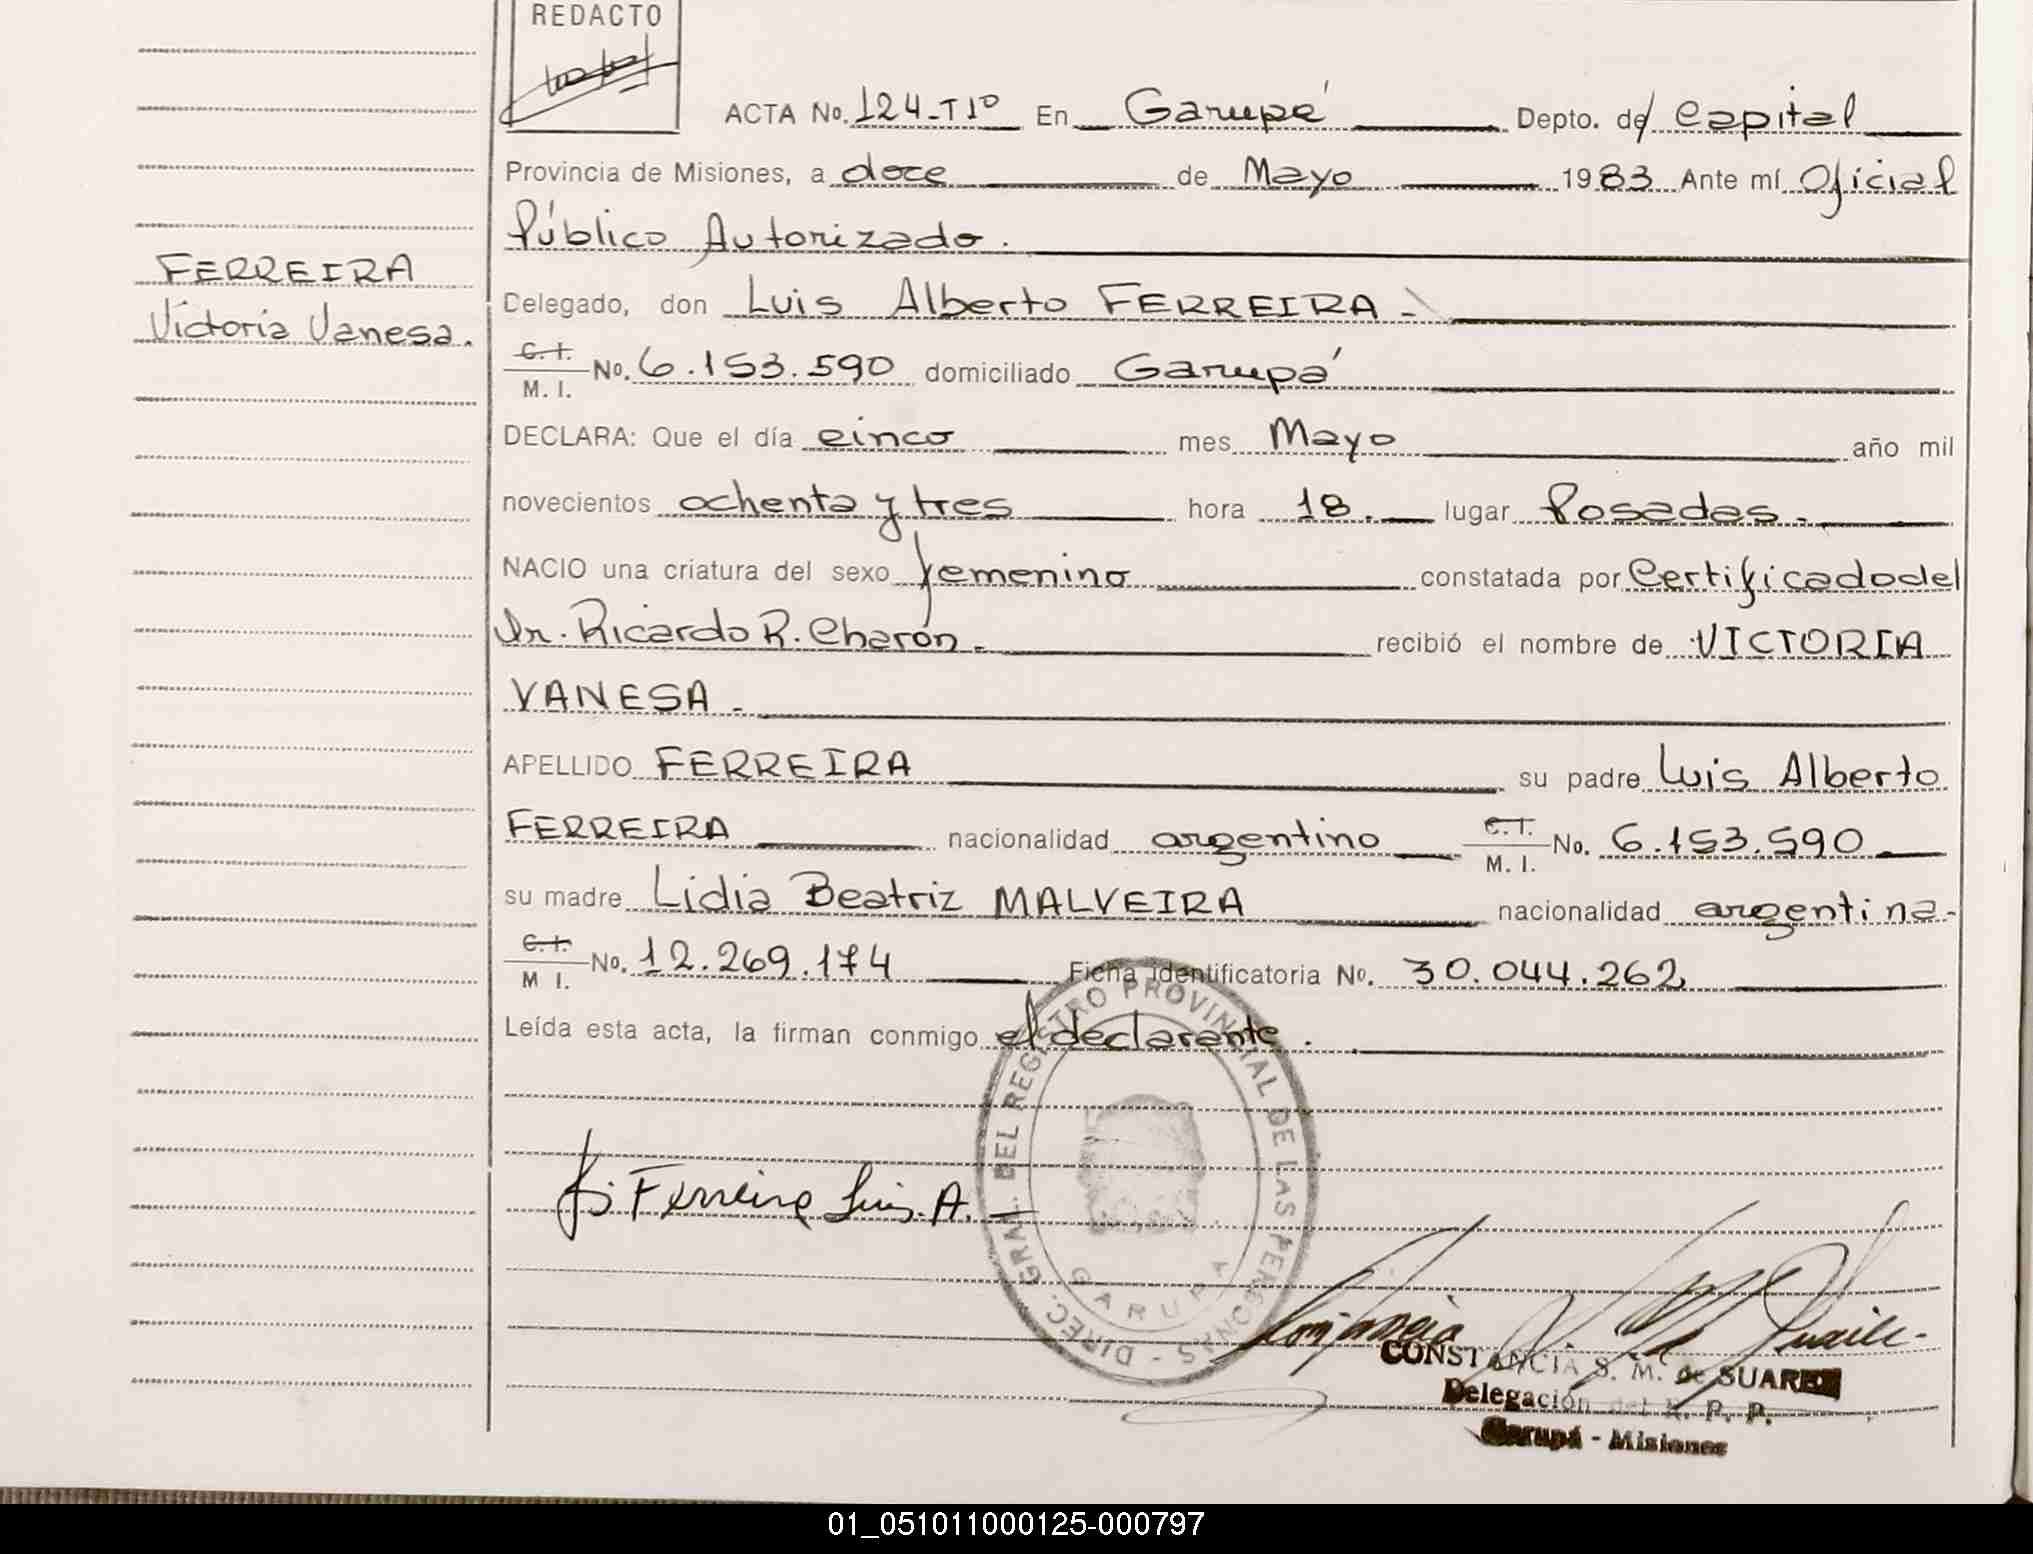 REDACTO
ACTA No. 124-T1º En Garupá Depto. de Capital
Provincia de Misiones, a doce de Mayo 1983 Ante mí Oficial
Público Autorizado.
FERREIRA
Victoria Vanesa.
Delegado, don Luis Alberto FERREIRA -
C.I. / M. I. No. 6.153.590 domiciliado Garupá
DECLARA: Que el día cinco mes Mayo año mil
novecientos ochenta y tres hora 18. lugar Posadas.
NACIO una criatura del sexo femenino constatada por Certificado del
Dr. Ricardo R. Charón. recibió el nombre de VICTORIA
VANESA -
APELLIDO FERREIRA su padre Luis Alberto
FERREIRA nacionalidad argentino C.I. / M. I. No. 6.153.590
su madre Lidia Beatriz MALVEIRA nacionalidad argentina-
C.I. / M I. No. 12.269.174 Ficha identificatoria No. 30.044.262
Leída esta acta, la firman conmigo el declarante.
DIREC. GRAL. DEL REGISTRO PROVINCIAL DE LAS PERSONAS -
GARUPA
Ferreira Luis. A.
CONSTANCIA S. M. de SUAREZ
Delegación del R. P. P.
Garupá - Misiones
01_051011000125-000797